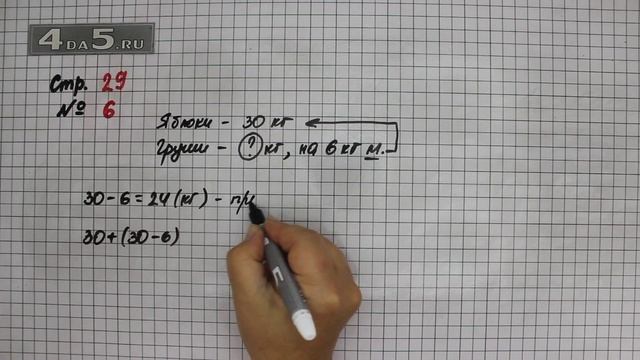 4DA5.RU
Стр. 29
№ 6
Яблоки - 30 кг
Груши - ? кг, на 6 кг м.
30 - 6 = 24 (кг) -
30 + (30 - 6)